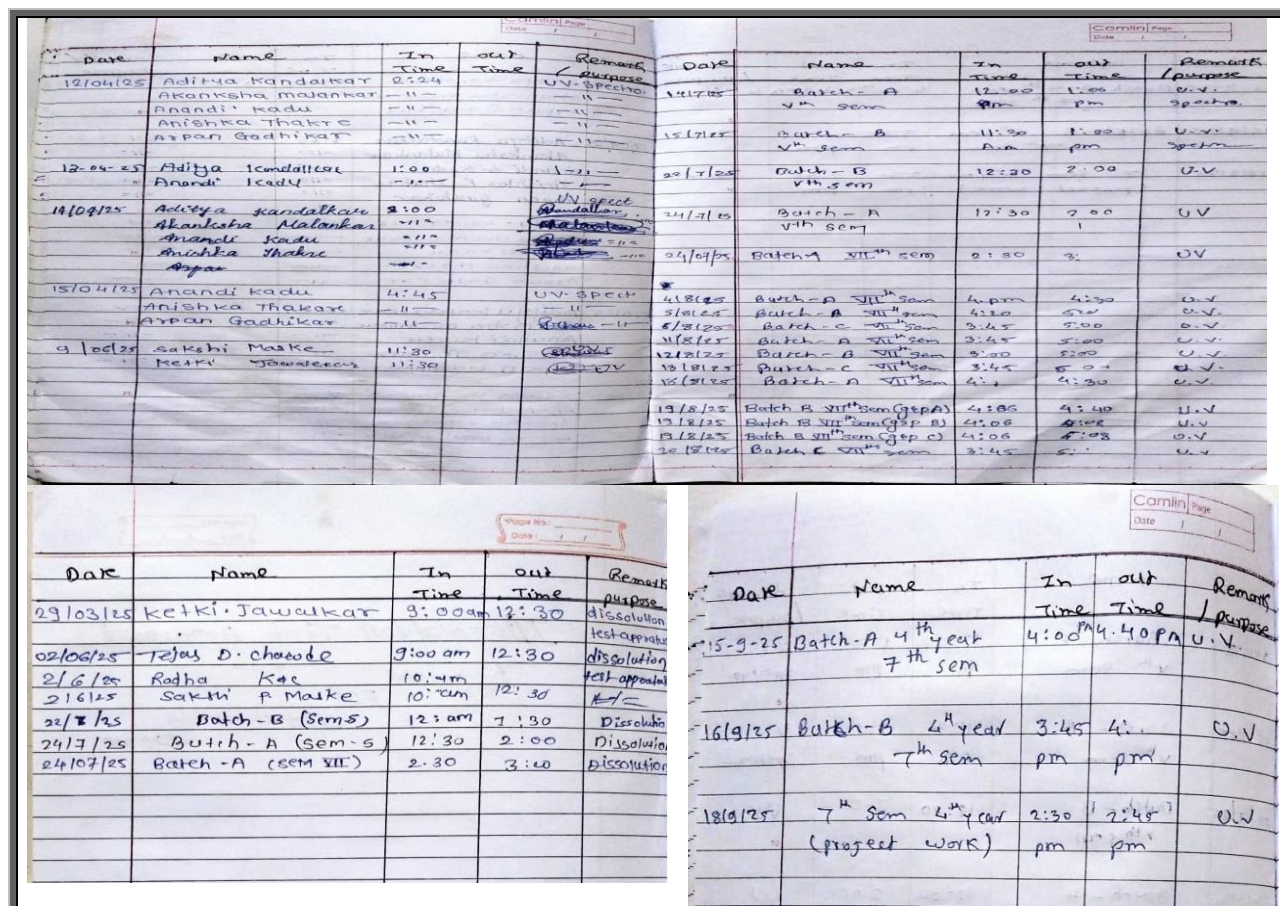 Camlin Page
Date / /
Date Name In Time out Time Remark / purpose
12/04/25 Aditya Kandalkar 2:24 UV-Spectro.
Akanksha Malankar —11— —11—
Anandi Kadu —11— —11—
Anishka Thakre —11— —11—
Arpan Gadhikar —11— —11—
13-04-25 Aditya Kandalkar 1:00 —11—
Anandi Kadu —11— —11—
UV spect
14/04/25 Aditya Kandalkar 2:00
Akanksha Malankar —11—
Anandi Kadu —11— —11—
Anishka Thakre —11— —11—
Arpan —11—
15/04/25 Anandi Kadu 4:45 UV-Spect
Anishka Thakare —11— —11—
Arpan Gadhikar —11— —11—
9/06/25 Sakshi Maske 11:30
Ketki 11:30 UV
Camlin Page
Date / /
Date Name In Time out Time Remark / purpose
14/7/25 Batch-A 12:00 1:00 U.V.
Vth sem pm pm spectro.
15/7/25 Batch-B 11:30 1:00 U.V.
Vth sem A.m pm
22/7/25 Batch-B 12:30 2:00 U.V
Vth sem
24/7/25 Batch-A 12:30 2 00 UV
Vth sem
24/07/25 Batch-A VIIth sem 2:30 3: UV
4/8/25 Batch-A VIIth sem 4.pm 4:30 U.V
5/8/25 Batch-B VIIth sem 4:20 U.V.
6/8/25 Batch-C VIIth sem 3:45 5:00 U.V.
11/8/25 Batch-A VIIth sem 3:45 5:00 U.V.
12/8/25 Batch-B VIIth sem 3:00 5:00 U.V.
13/8/25 Batch-C VIIth sem 3:45 U.V.
18/8/25 Batch-A VIIth sem 4: 4:30 U.V
19/8/25 Batch B VIIth sem (grp A) 4:06 4:40 U.V
19/8/25 Batch B VIIth sem (grp B) 4:06 5:08 U.V
19/8/25 Batch B VIIth sem (grp C) 4:06 5:08 U.V
20/8/25 Batch C VIIth sem 3:45 5: U.V
Page No.:
Date: / /
Date Name In Time out Time Remark purpose
29/03/25 Ketki. Jawalkar 9:00am 12:30 dissolution
test apparatus
02/06/25 Tejas D. 9:00 am 12:30 dissolution
2/6/25 Radha 10: am test apparatu
2/6/25 Sakshi P. Maske 10: am 12:30
22/7/25 Batch-B (Sem-5) 12: am 1:30 Dissolutio
24/7/25 Batch-A (Sem-5) 12:30 2:00 Dissolution
24/07/25 Batch-A (SEM VII) 2.30 3:00 Dissolution
Camlin Page
Date / /
Date Name In Time out Time Remark / purpose
15-9-25 Batch-A 4th year 4:00 PM 4.40 PM U.V.
7th sem
16/9/25 Batch-B 4th year 3:45 4: U.V
7th sem pm pm
18/9/25 7th Sem 4th year 2:30 2:45 U.V
(project work) pm pm